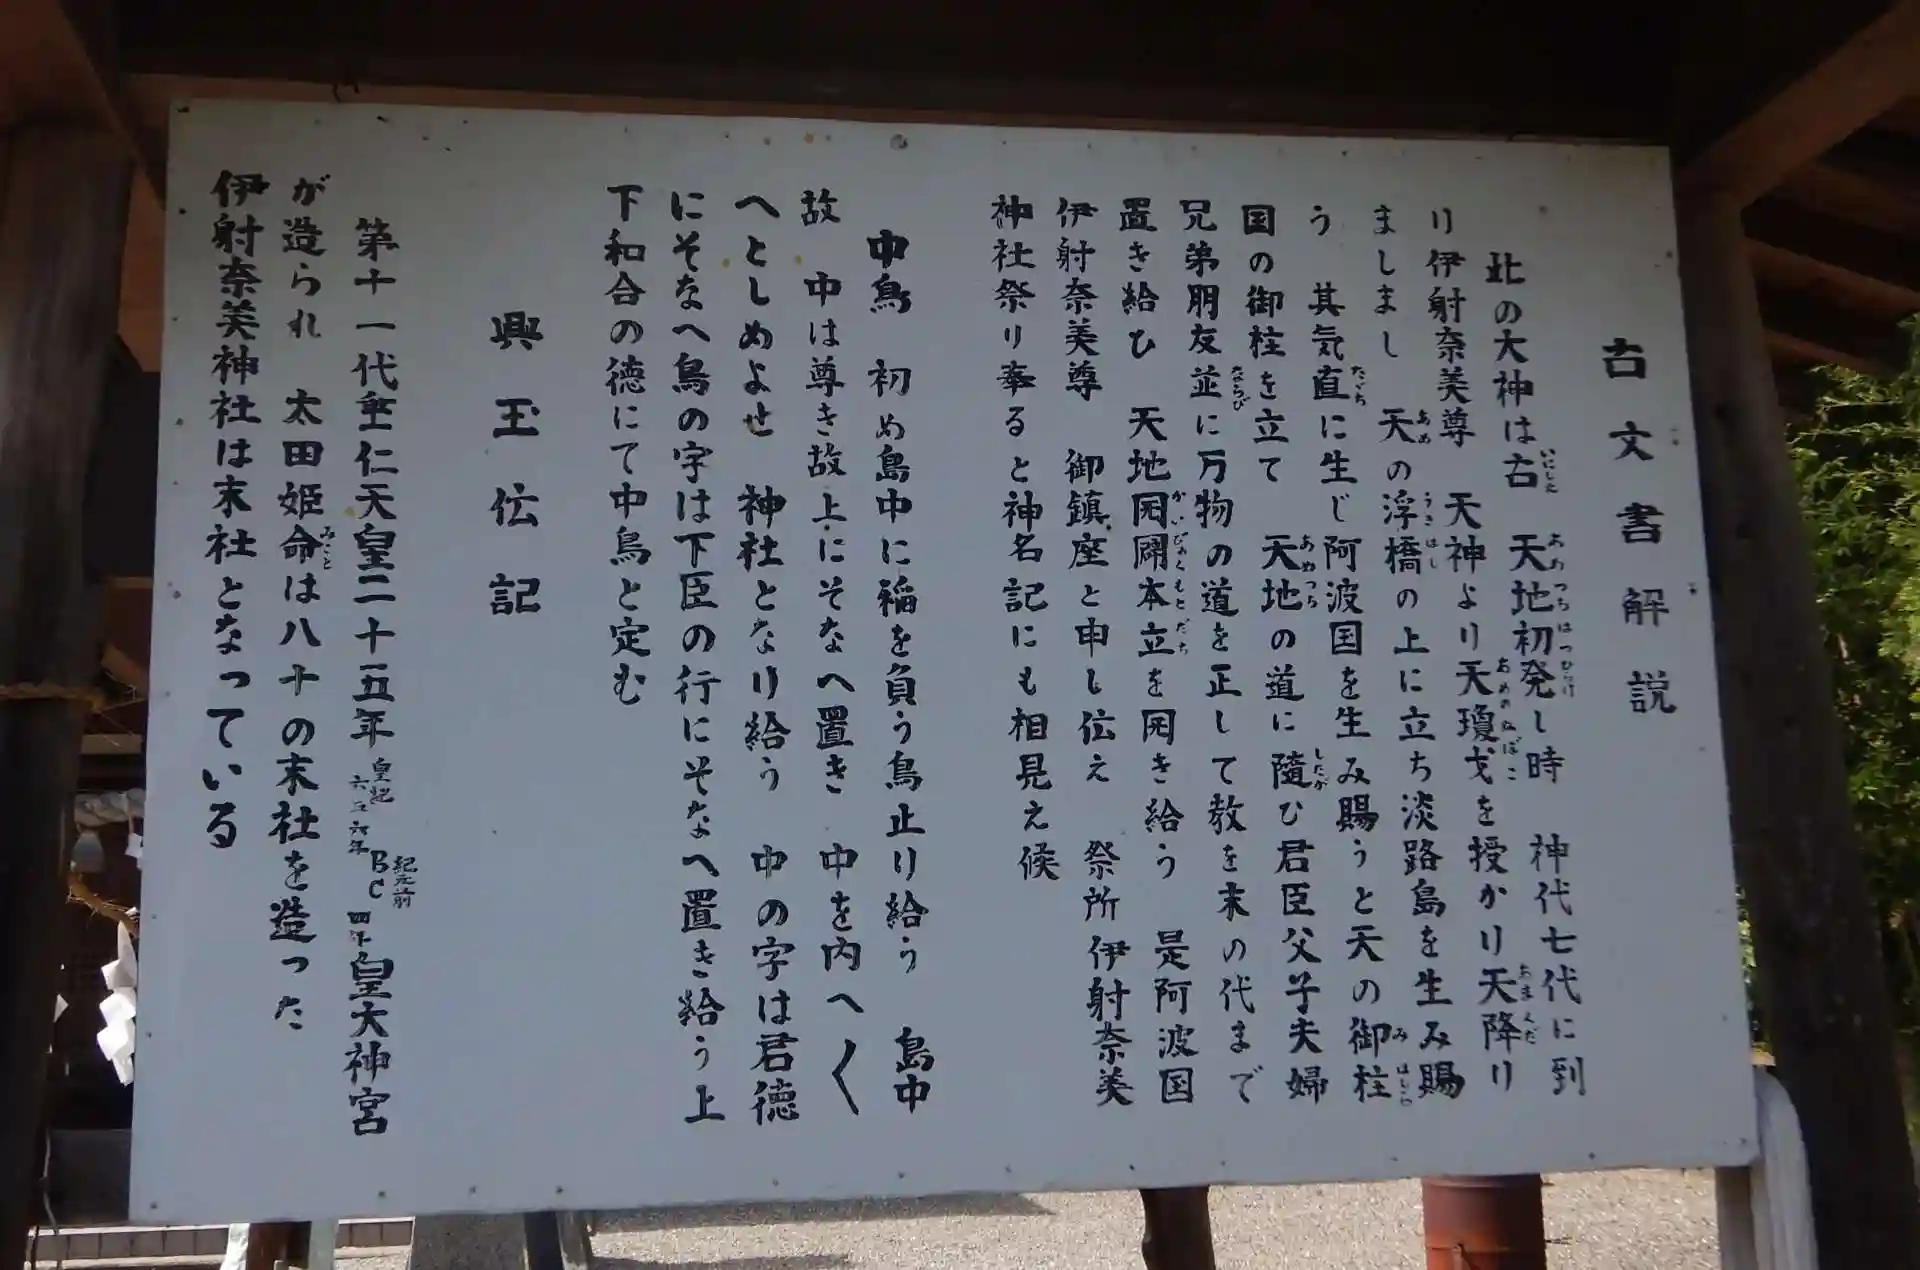 古文書解説
此の大神は古 天地初発し時 神代七代に到
り伊射奈美尊 天神より天瓊戈を授かり天降り
ましまし 天の浮橋の上に立ち淡路島を生み賜
う 其気直に生じ阿波国を生み賜うと天の御柱
国の御柱を立て 天地の道に隨ひ君臣父子夫婦
兄弟朋友並に万物の道を正して教を末の代まで
置き給ひ 天地開闢本立を開き給う 是阿波国
伊射奈美尊 御鎮座と申し伝え 祭所伊射奈美
神社祭り奉ると神名記にも相見え候
中鳥 初め島中に稲を負う鳥止り給う 島中
故 中は尊き故上にそなへ置き 中を内へ〱
へとしめよせ 神社となり給う 中の字は君徳
にそなへ鳥の字は下臣の行にそなへ置き給う上
下和合の徳にて中鳥と定む
興玉伝記
第十一代垂仁天皇二十五年 皇紀六五六年 紀元前BC四年 皇大神宮
が造られ 太田姫命は八十の末社を造った
伊射奈美神社は末社となっている